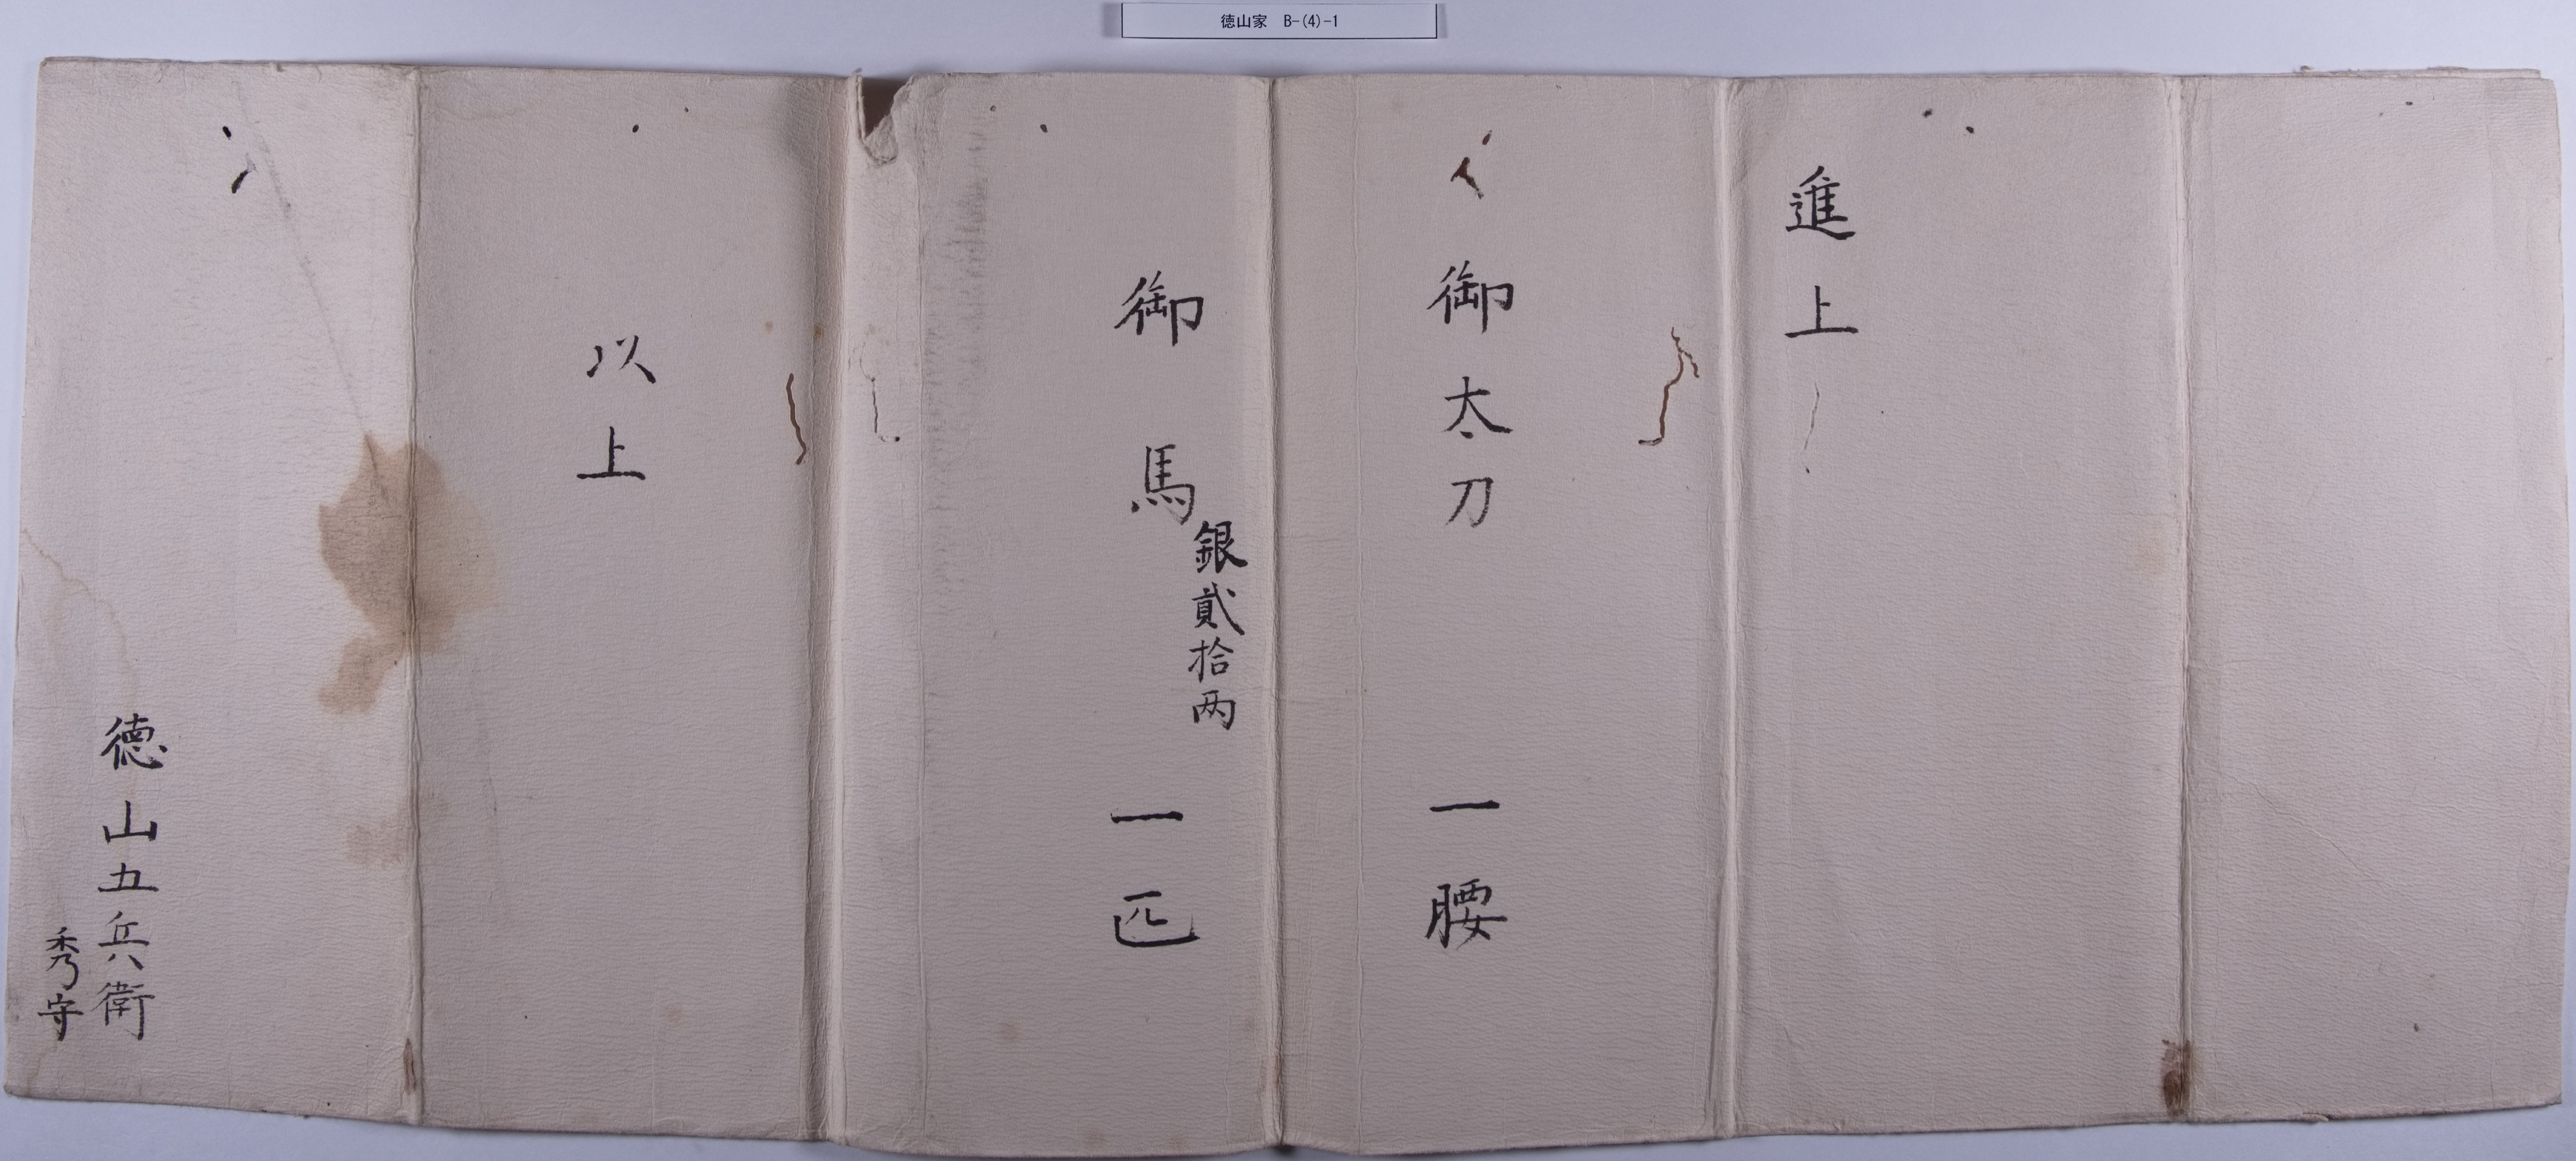 徳山家 B-(4)-1
進上
御太刀 一腰
御馬 銀貮拾両 一匹
以上
徳山五兵衛
秀守